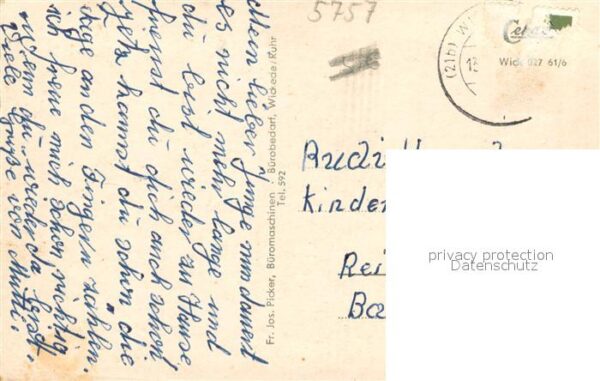 Mein lieber Junge nun dauert
es nicht mehr lange und
du bist wieder zu Hause
freust du dich auch schon
jetz kannst du schon die
Tage an den Fingern zählen.
ich freue mich schon richtig
wenn du wieder da bist.
Viele Grüße von Mutti.
Fr. Jos. Picker, Büromaschinen · Bürobedarf, Wickede/Ruhr
Tel. 592
5757
(21b)
Cekade
Wick 027 61/6
Rudi
Kinder
Rei
Ba
privacy protection
Datenschutz